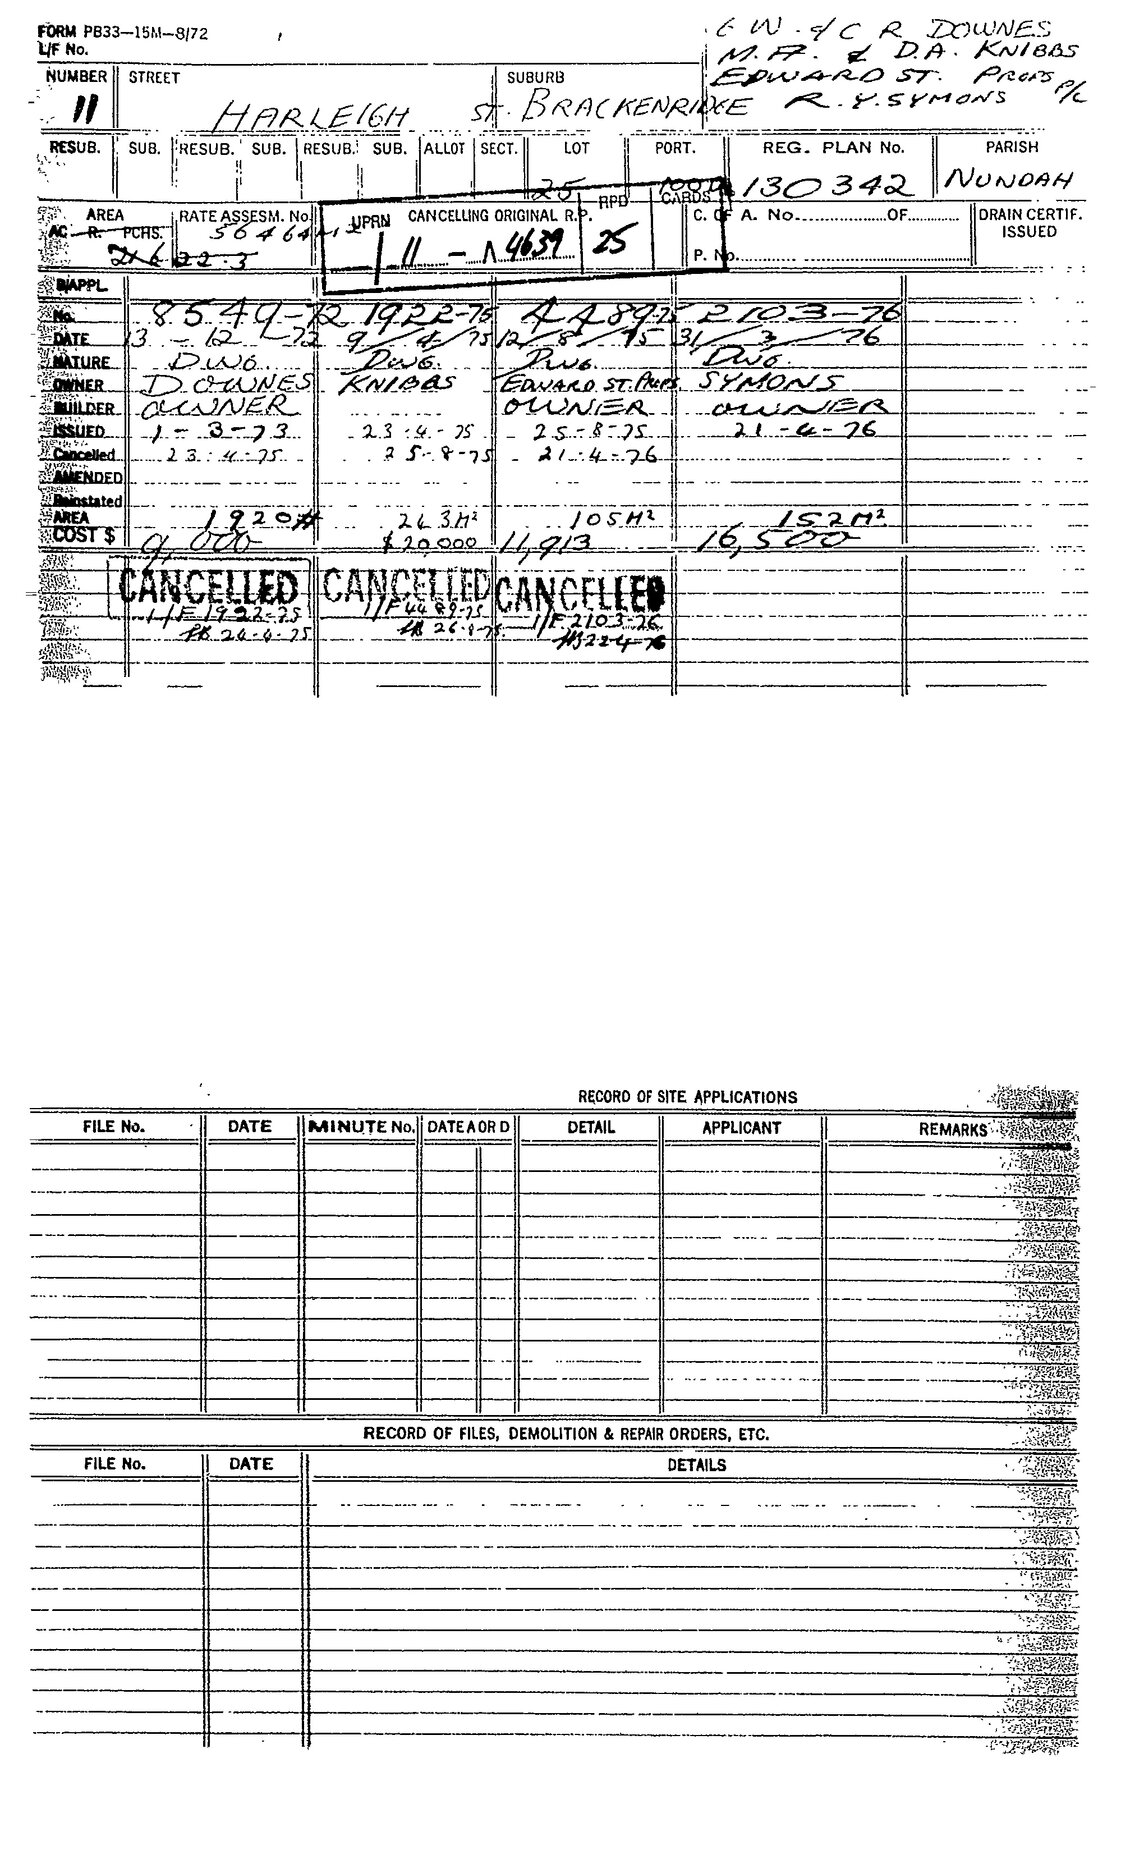 FORM PB33—15M—8/72
L/F No.
E W. & C R DOWNES
M. A. & D.A. KNIBBS
EDWARD ST. PROPS P/L
R. Y. SYMONS
NUMBER STREET SUBURB
11 HARLEIGH ST. BRACKENRIDGE
RESUB. SUB. RESUB. SUB. RESUB. SUB. ALLOT SECT. LOT PORT. REG. PLAN No. PARISH
25 130342 NUNDAH
AREA RATE ASSESM. No. UPRN CANCELLING ORIGINAL R.P. RPD CARDS C. OF A. No. OF DRAIN CERTIF. ISSUED
AC. R. PCHS. 11 — 4639 25 P. No.
22.3
B/APPL.
No. 8549-72 1922-75 4489-75 2103-76
DATE 13 - 12 - 72 9/4/75 12/8/75 31/3/76
NATURE DWG. DWG. DWG. DWG.
OWNER DOWNES KNIBBS EDWARD ST. PROPS. SYMONS
BUILDER OWNER OWNER OWNER
ISSUED 1-3-73 23-4-75 25-8-75 21-4-76
Cancelled 23-4-75 25-8-75 21-4-76
AMENDED
Reinstated
AREA 1920# 243M² 105M² 152M²
COST $ 9,000 $20,000 11,913 16,500
CANCELLED CANCELLED CANCELLED
I/F 1922-75 I/F 4489-75 I/F 2103-76
24-4-75 26-8-75 22-4-76
RECORD OF SITE APPLICATIONS
FILE No. DATE MINUTE No. DATE A OR D DETAIL APPLICANT REMARKS
RECORD OF FILES, DEMOLITION & REPAIR ORDERS, ETC.
FILE No. DATE DETAILS